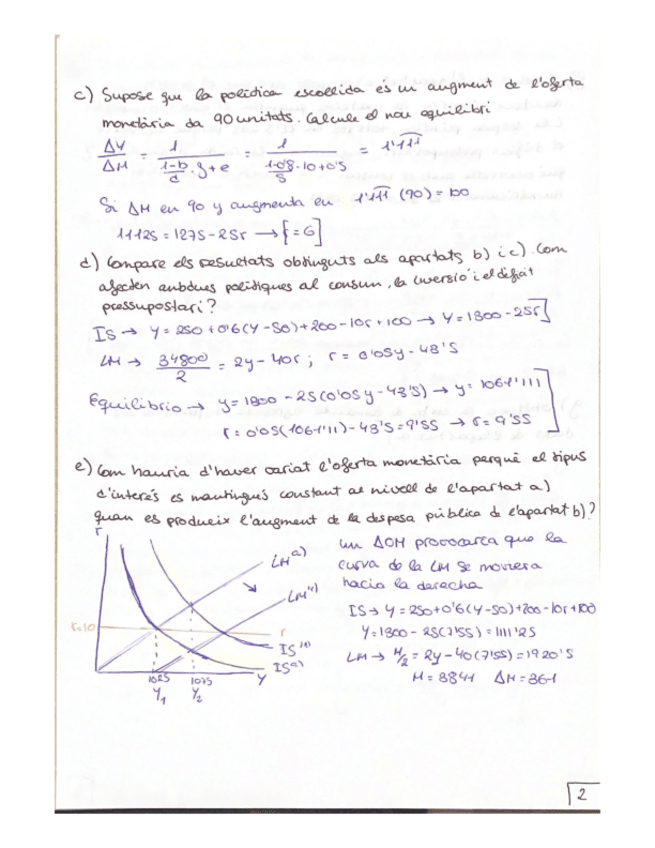 c) Supose que la política escollida és un augment de l'oferta
monetària da 90 unitats. Calcule el nou equilibri
ΔY/ΔM = 1/((1-b)/d · g + e) = 1/((1-0'8)/5 · 10 + 0'5) = 1'111
Si ΔM en 90 y augmenta en 1'111 (90) = 100
1112S = 127S - 2Sr → [r = 6]
d) Compare els resultats obtinguts als apartats b) i c). Com
afecten ambdues polítiques al consum, la inversió i el dèficit
pressupostari?
IS → Y = 250 + 0'6(Y - 50) + 200 - 10r + 100 → Y = 1300 - 25r]
LM → 34800/2 = 2y - 40r ; r = 0'05y - 43'5
Equilibrio → y = 1800 - 25(0'05y - 43'5) → y = 1061'111
r = 0'05(1061'11) - 43'5 = 9'55 → r = 9'55
e) Com hauria d'haver variat l'oferta monetària perquè el tipus
d'interés es mantingués constant al nivell de l'apartat a)
quan es produeix l'augment de la despesa pública de l'apartat b)?
un ΔOM provocarca que la
curva de la LM se moviera
hacia la derecha
IS → Y = 250 + 0'6(Y - 50) + 200 - 10r + 100
Y = 1300 - 25(7'55) = 1111'25
LM → M/2 = 2y - 40(7'55) = 1920'5
M = 3841 ΔM = 361
r
LM a)
LM
r=10
r
IS
IS a)
1025
1075
Y
Y1
Y2
2